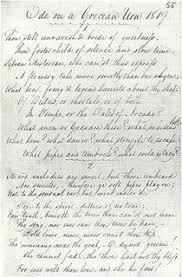 55
Ode on a Grecian Urn 1819
Thou still unravished bride of quietness,
Thou foster child of silence and slow time,
Sylvan Historian, who can'st thus express
A flowery tale more sweetly than our rhyme,
What leaf fring'd legend haunts about thy shape
Of Deities, or mortals, or of both
In Tempe, or the Dales of Arcady?
What men or Gods are these? what maidens loth
What love? what dance? what struggle to escape?
What pipes and timbrels? what wild extacy?
Heard melodies are sweet, but those unheard
Are sweeter, therefore ye soft pipes play on
Not to the sensual ear, but more endear'd
Pipe to the spirit ditties of no tone
Fair Youth, beneath the trees thou can'st not leave
Thy song nor ever can those trees be bare
Bold lover never never can'st thou kiss
Tho' winning near the goal O do not grieve
She cannot fade, tho' thou hast not thy bliss
For ever wilt thou love and she be fair